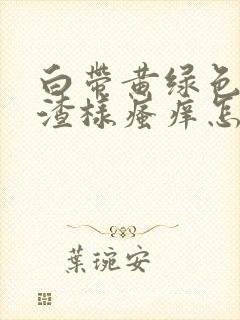 白带黄绿色
渣样瘙痒怎
葉琬安